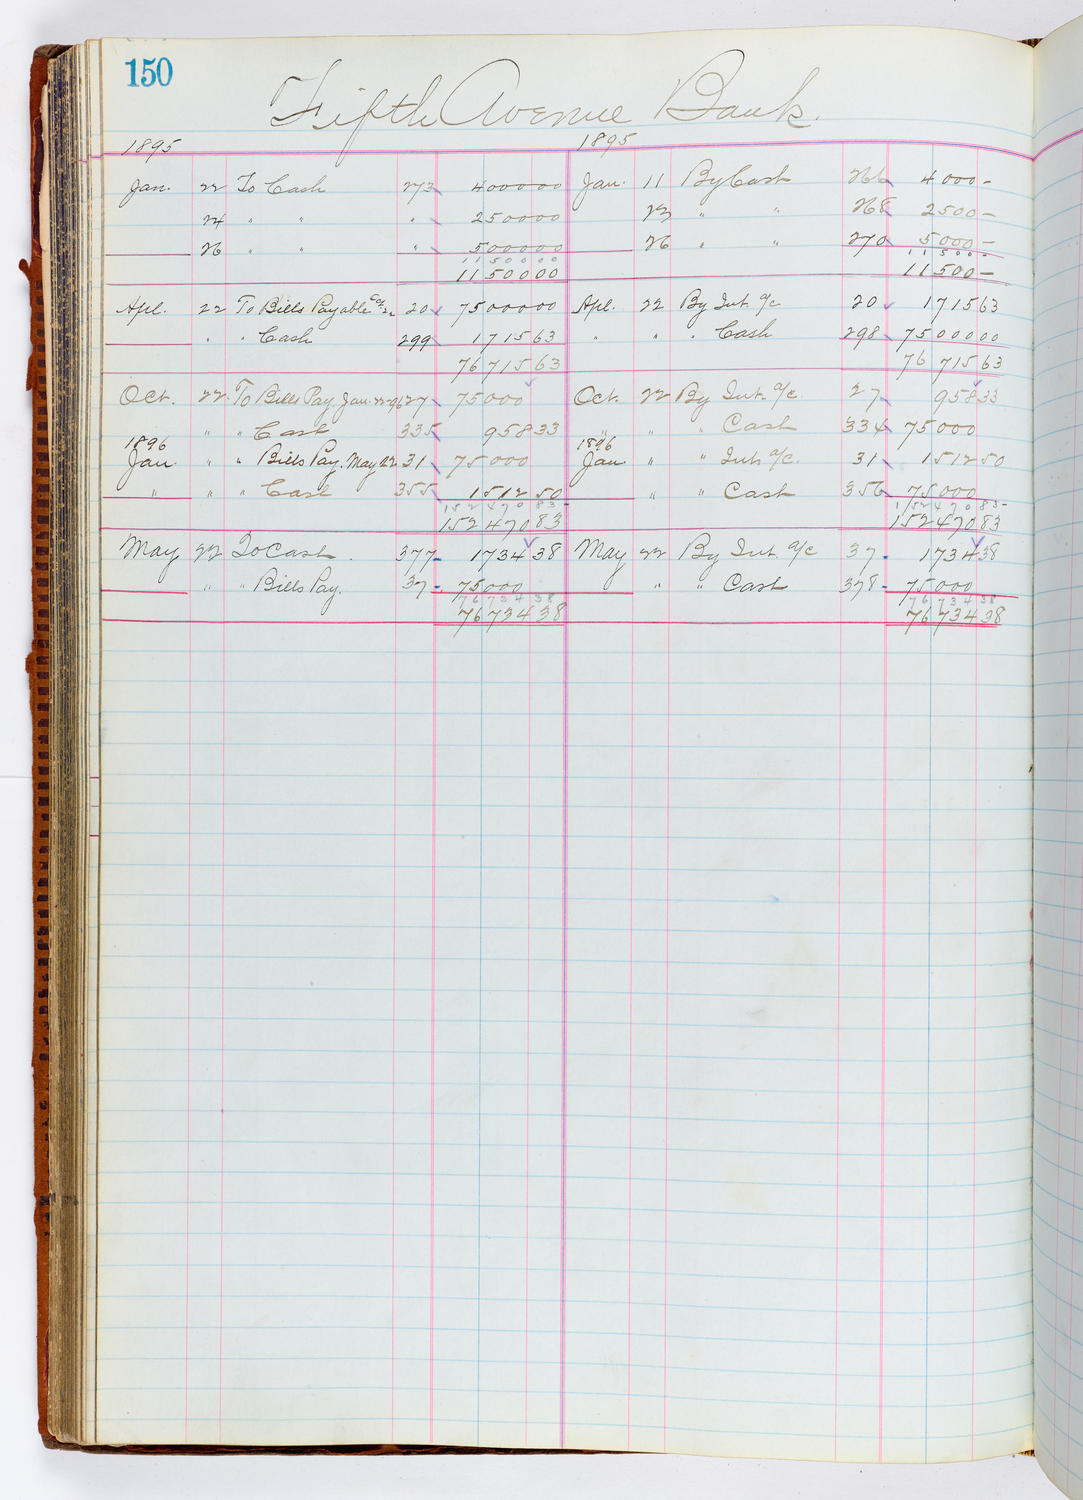 150
Fifth Avenue Bank.
1895 1895
Jan. 22 To Cash 273 4000 00 Jan. 11 By Cash 266 4000 -
24 " " " 2500 00 23 " " 268 2500 -
26 " " " 5000 00 26 " " 270 5000 -
11500 00 11500 -
11500 00 11500 -
Apl. 22 To Bills Payable 20 75000 00 Apl. 22 By Int. a/c 20 1715 63
" " Cash 299 1715 63 " " " Cash 298 75000 00
76715 63 76715 63
Oct. 22 To Bills Pay. Jan. 22-96 27 75000 Oct. 22 By Int. a/c. 27 958 33
" " Cash 335 958 33 " " " Cash 334 75000
1896 1896
Jan " " Bills Pay. May 22 31 75000 Jan " " Int. a/c. 31 1512 50
" " " Cash 355 1512 50 " " Cash 356 75000
152470 83 - 152470 83 -
152470 83 152470 83
May 22 To Cash. 377 1734 38 May 22 By Int. a/c 37 1734 38
" " Bills Pay. 37 75000 " " Cash 378 75000
76734 38 76734 38
76734 38 76734 38